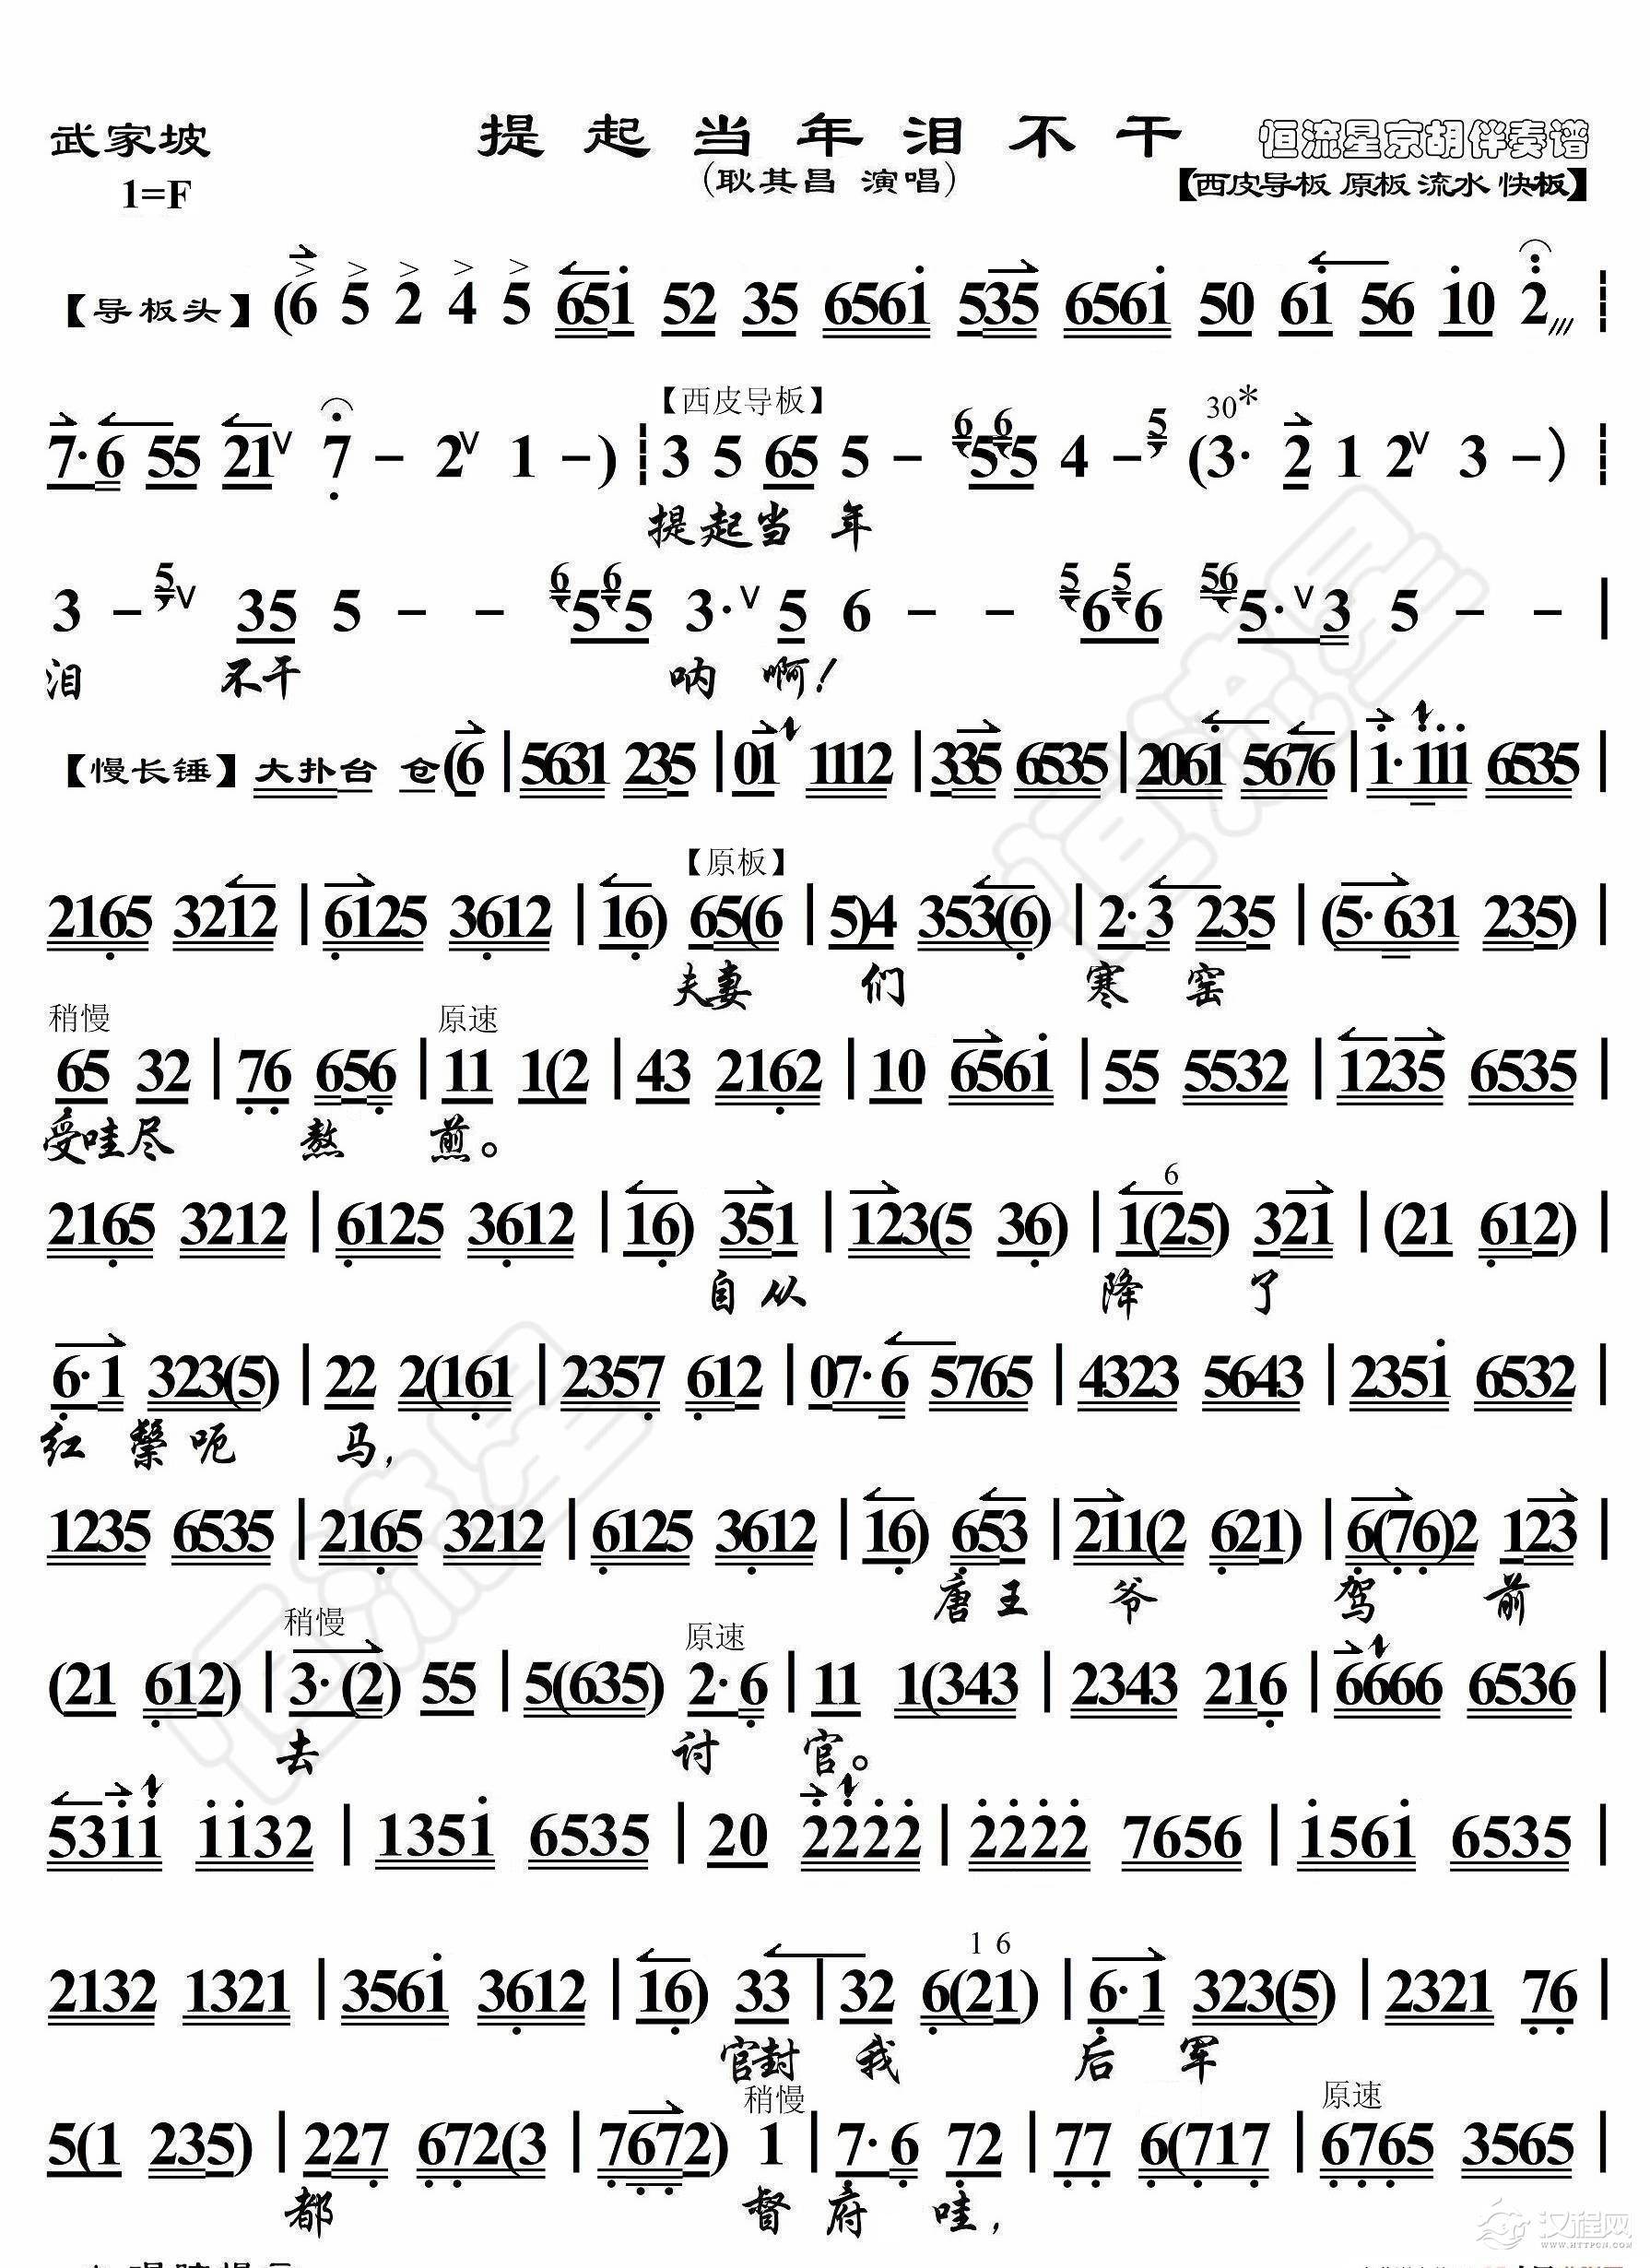 武家坡 提起当年泪不干 恒流星京胡伴奏谱
1=F (耿其昌 演唱) 【西皮导板 原板 流水 快板】
【导板头】 (6 5 2 4 5 651 52 35 6561 535 6561 50 61 56 10 2
7·6 55 21 7 - 2 1 -) 【西皮导板】 3 5 65 5 - 6 6 55 4 - 5 30* (3· 2 1 2 3 -)
提起当 年
3 - 5 35 5 - - 6 6 55 3· 5 6 - - 5 5 66 56 5·3 5 - - |
泪 不干 呐 啊!
【慢长锤】 大扑台 仓 (6 | 5631 235 | 01 1112 | 335 6535 | 2061 5676 | 1·111 6535 |
2165 3212 | 6125 3612 | 16) 【原板】 65(6 | 5)4 353(6) | 2·3 235 | (5·631 235) |
夫妻 们 寒 窑
稍慢 原速
65 32 | 76 656 | 11 1(2 | 43 2162 | 10 6561 | 55 5532 | 1235 6535 |
受哇尽 熬 煎。
2165 3212 | 6125 3612 | 16) 351 | 123(5 36) | 6 1(25) 321 | (21 612) |
自从 降 了
6·1 323(5) | 22 2(161 | 2357 612 | 07·6 5765 | 4323 5643 | 2351 6532 |
红 鬃 呃 马,
1235 6535 | 2165 3212 | 6125 3612 | 16) 653 | 211(2 621) | 6(76)2 123 |
唐王 爷 驾 前
稍慢 原速
(21 612) | 3·(2) 55 | 5(635) 2·6 | 11 1(343 | 2343 216 | 6666 6536 |
去 讨 官。
5311 1132 | 1351 6535 | 20 2222 | 2222 7656 | 1561 6535 |
2132 1321 | 3561 3612 | 16) 33 | 32 1 6 6(21) | 6·1 323(5) | 2321 76 |
官封 我 后 军
稍慢 原速
5(1 235) | 227 672(3 | 7672) 1 | 7·6 72 | 77 6(717 | 6765 3565
都 督 府 哇,
汉程网
WWW.HTTPCN.COM